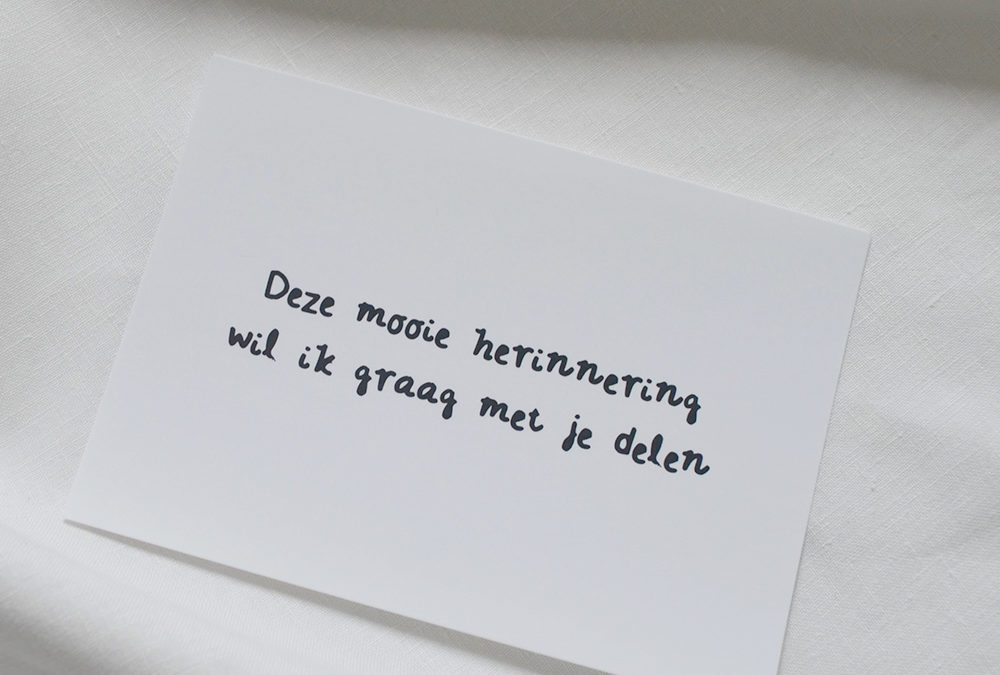 Deze mooie herinnering
wil ik graag met je delen